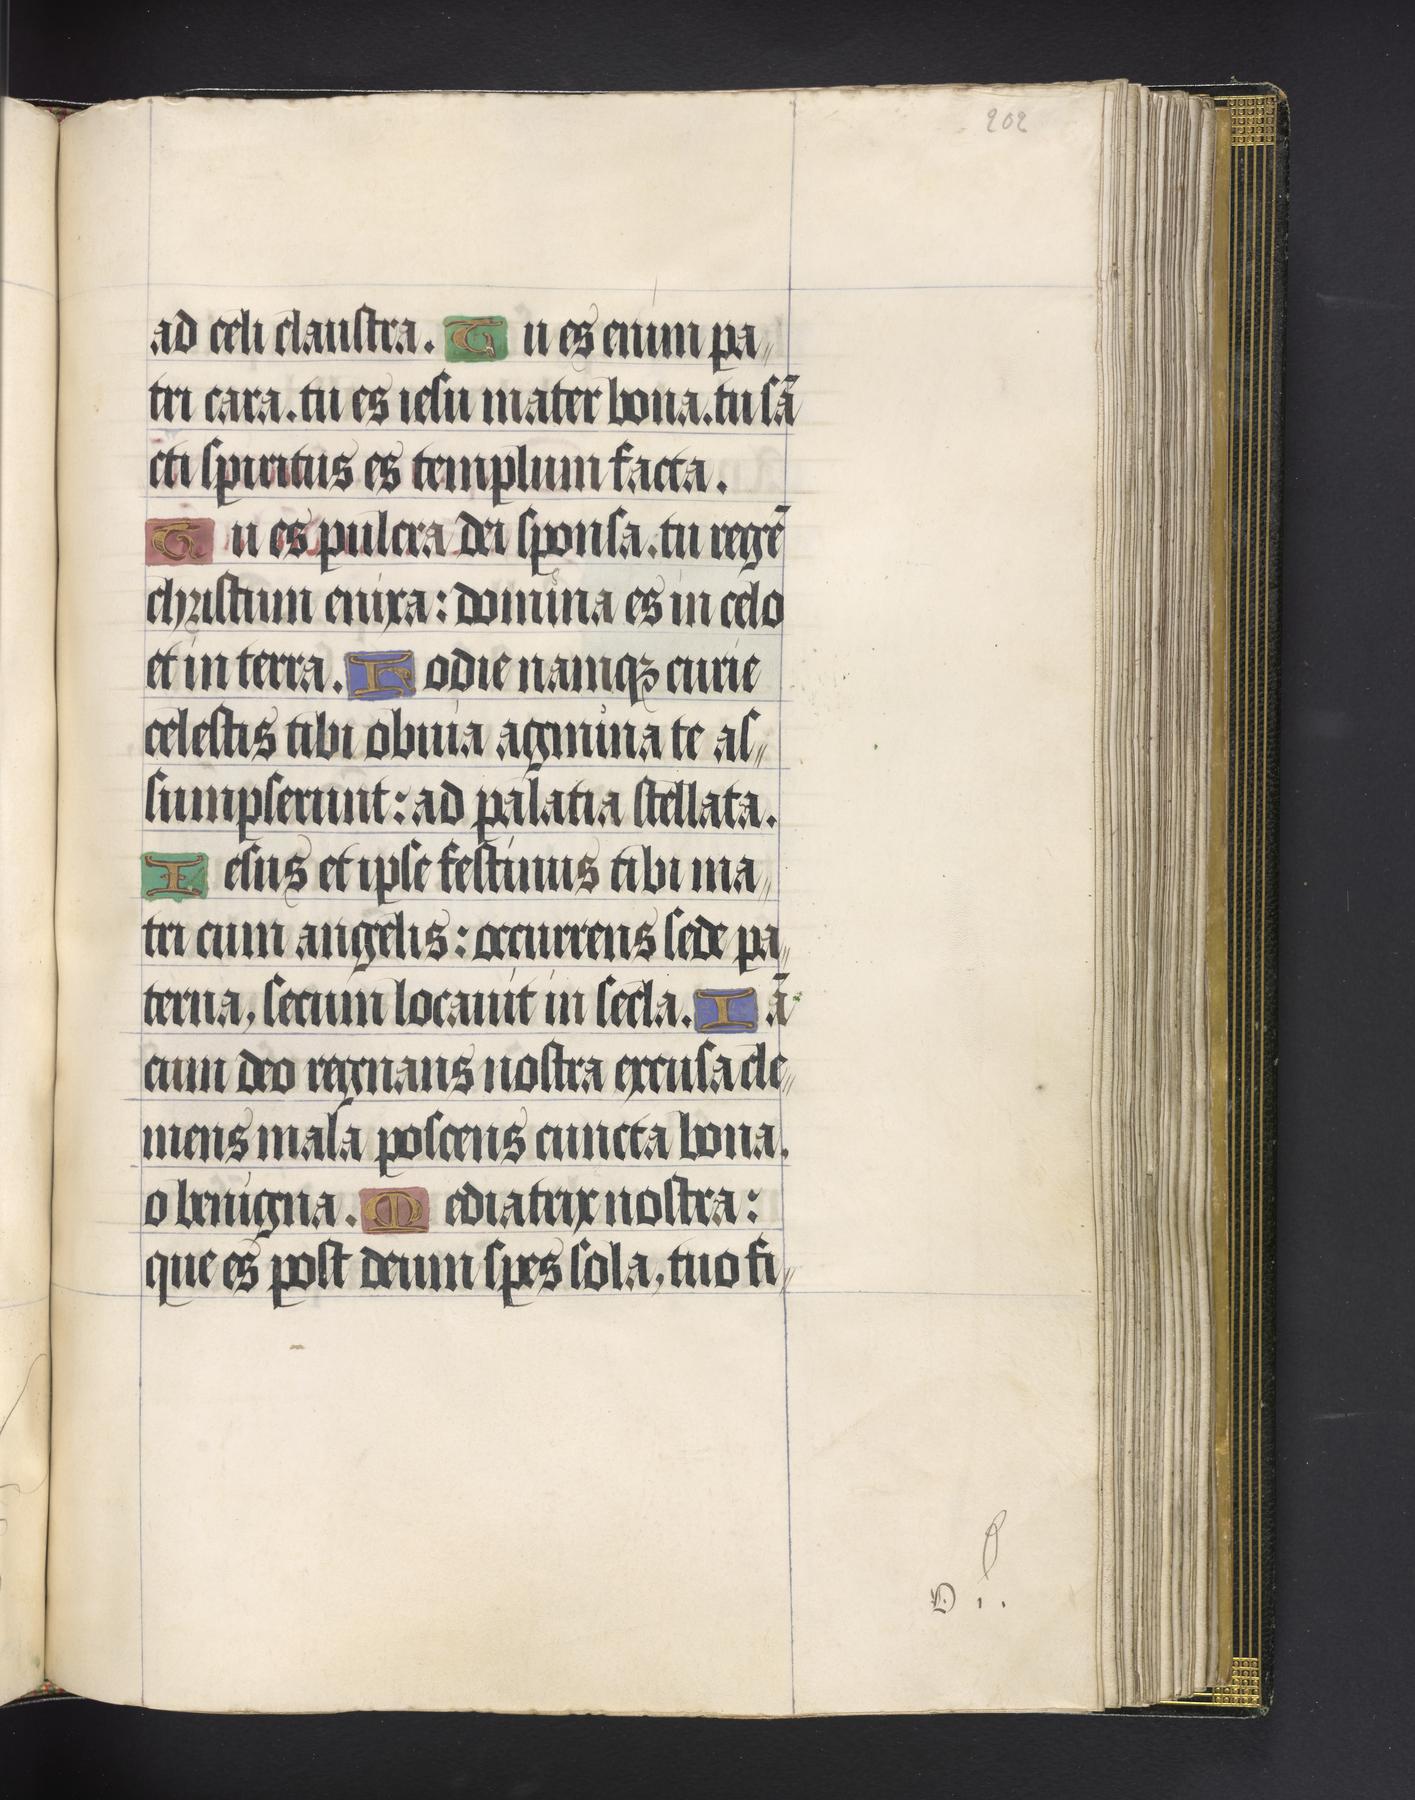 202
ad celi claustra. Tu es enim pa〃
tri cara. tu es iesu mater bona. tu sā
cti spiritus es templum facta.
Tu es pulcra dei sponsa. tu regē
christum enixa: domina es in celo
et in terra. Hodie namqꝫ curie
celestis tibi obuia agmina te as〃
sumpserunt: ad palatia stellata.
Iesus et ipse festinus tibi ma〃
tri cum angelis: occurrens sede pa〃
terna, secum locauit in secla. Iā
cum deo regnans nostra excusa cle〃
mens mala poscens cuncta bona.
o benigna. Mediatrix nostra:
que es post deum spes sola, tuo fi〃